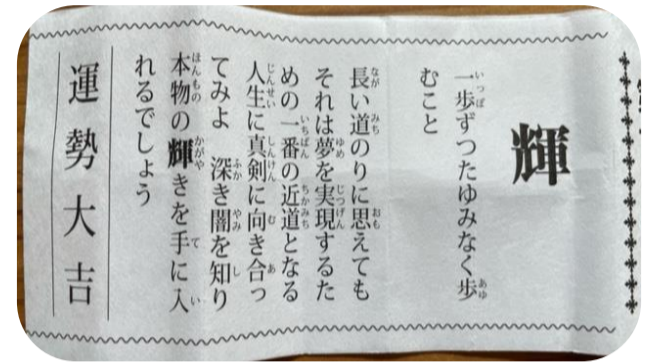 輝
一歩ずつたゆみなく歩
むこと
長い道のりに思えても
それは夢を実現するた
めの一番の近道となる
人生に真剣に向き合っ
てみよ　深き闇を知り
本物の輝きを手に入
れるでしょう
運勢大吉